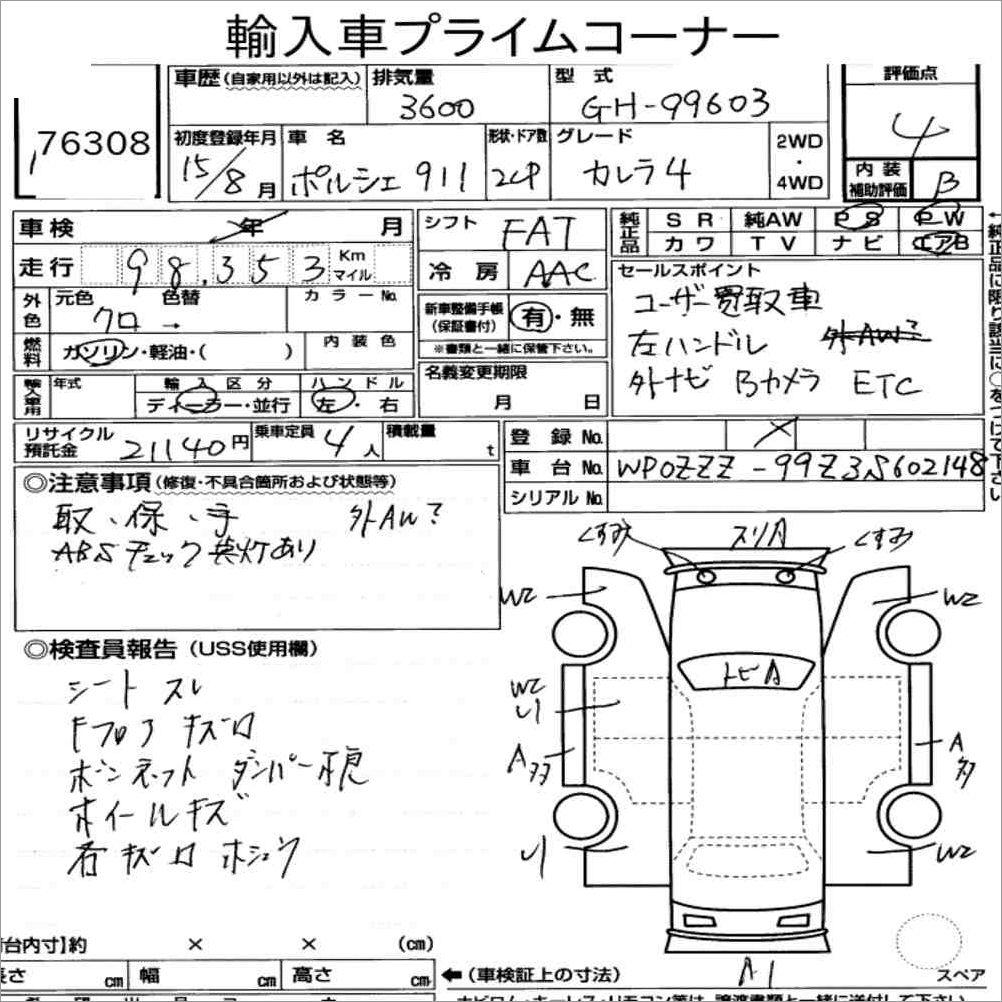 輸入車プライムコーナー
76308
車歴(自家用以外は記入)
排気量
3600
型式
GH-99603
評価点
4
初度登録年月
15/8月
車名
ポルシェ 911
形状・ドア数
2CP
グレード
カレラ4
2WD
・
4WD
内装
補助評価
B
車検 年 月
シフト
FAT
純正品
SR 純AW PS PW
カワ TV ナビ エアB
走行 98,353 Km マイル
冷房
AAC
セールスポイント
ユーザー買取車
左ハンドル 外AW?
外ナビ Bカメラ ETC
外色
元色 色替
クロ →
カラーNo.
新車整備手帳
(保証書付)
有・無
※書類と一緒に保管下さい。
燃料
ガソリン・軽油・( )
内装色
輸入車用
年式
輸入区分
ディーラー・並行
ハンドル
左・右
名義変更期限
月 日
←純正品に限り該当に○をつけて下さい
リサイクル
預託金
21140円
乗車定員
4人
積載量
t
登録No.
車台No.
WP0ZZZ-99Z3S602148
シリアルNo.
◎注意事項(修復・不具合箇所および状態等)
取、保、手 外AW?
ABSチェック英灯あり
くすみ スリA くすみ
W2 W2
トビA
W2
U1
A
A
U1 W2
A1
◎検査員報告(USS使用欄)
シート スレ
Fフロア キズロ
ボンネット ダンパー
ホイールキズ
各 キズロ ホシュウ
荷台内寸】約 × × (cm)
長さ cm 幅 cm 高さ cm
←(車検証上の寸法)
スペア